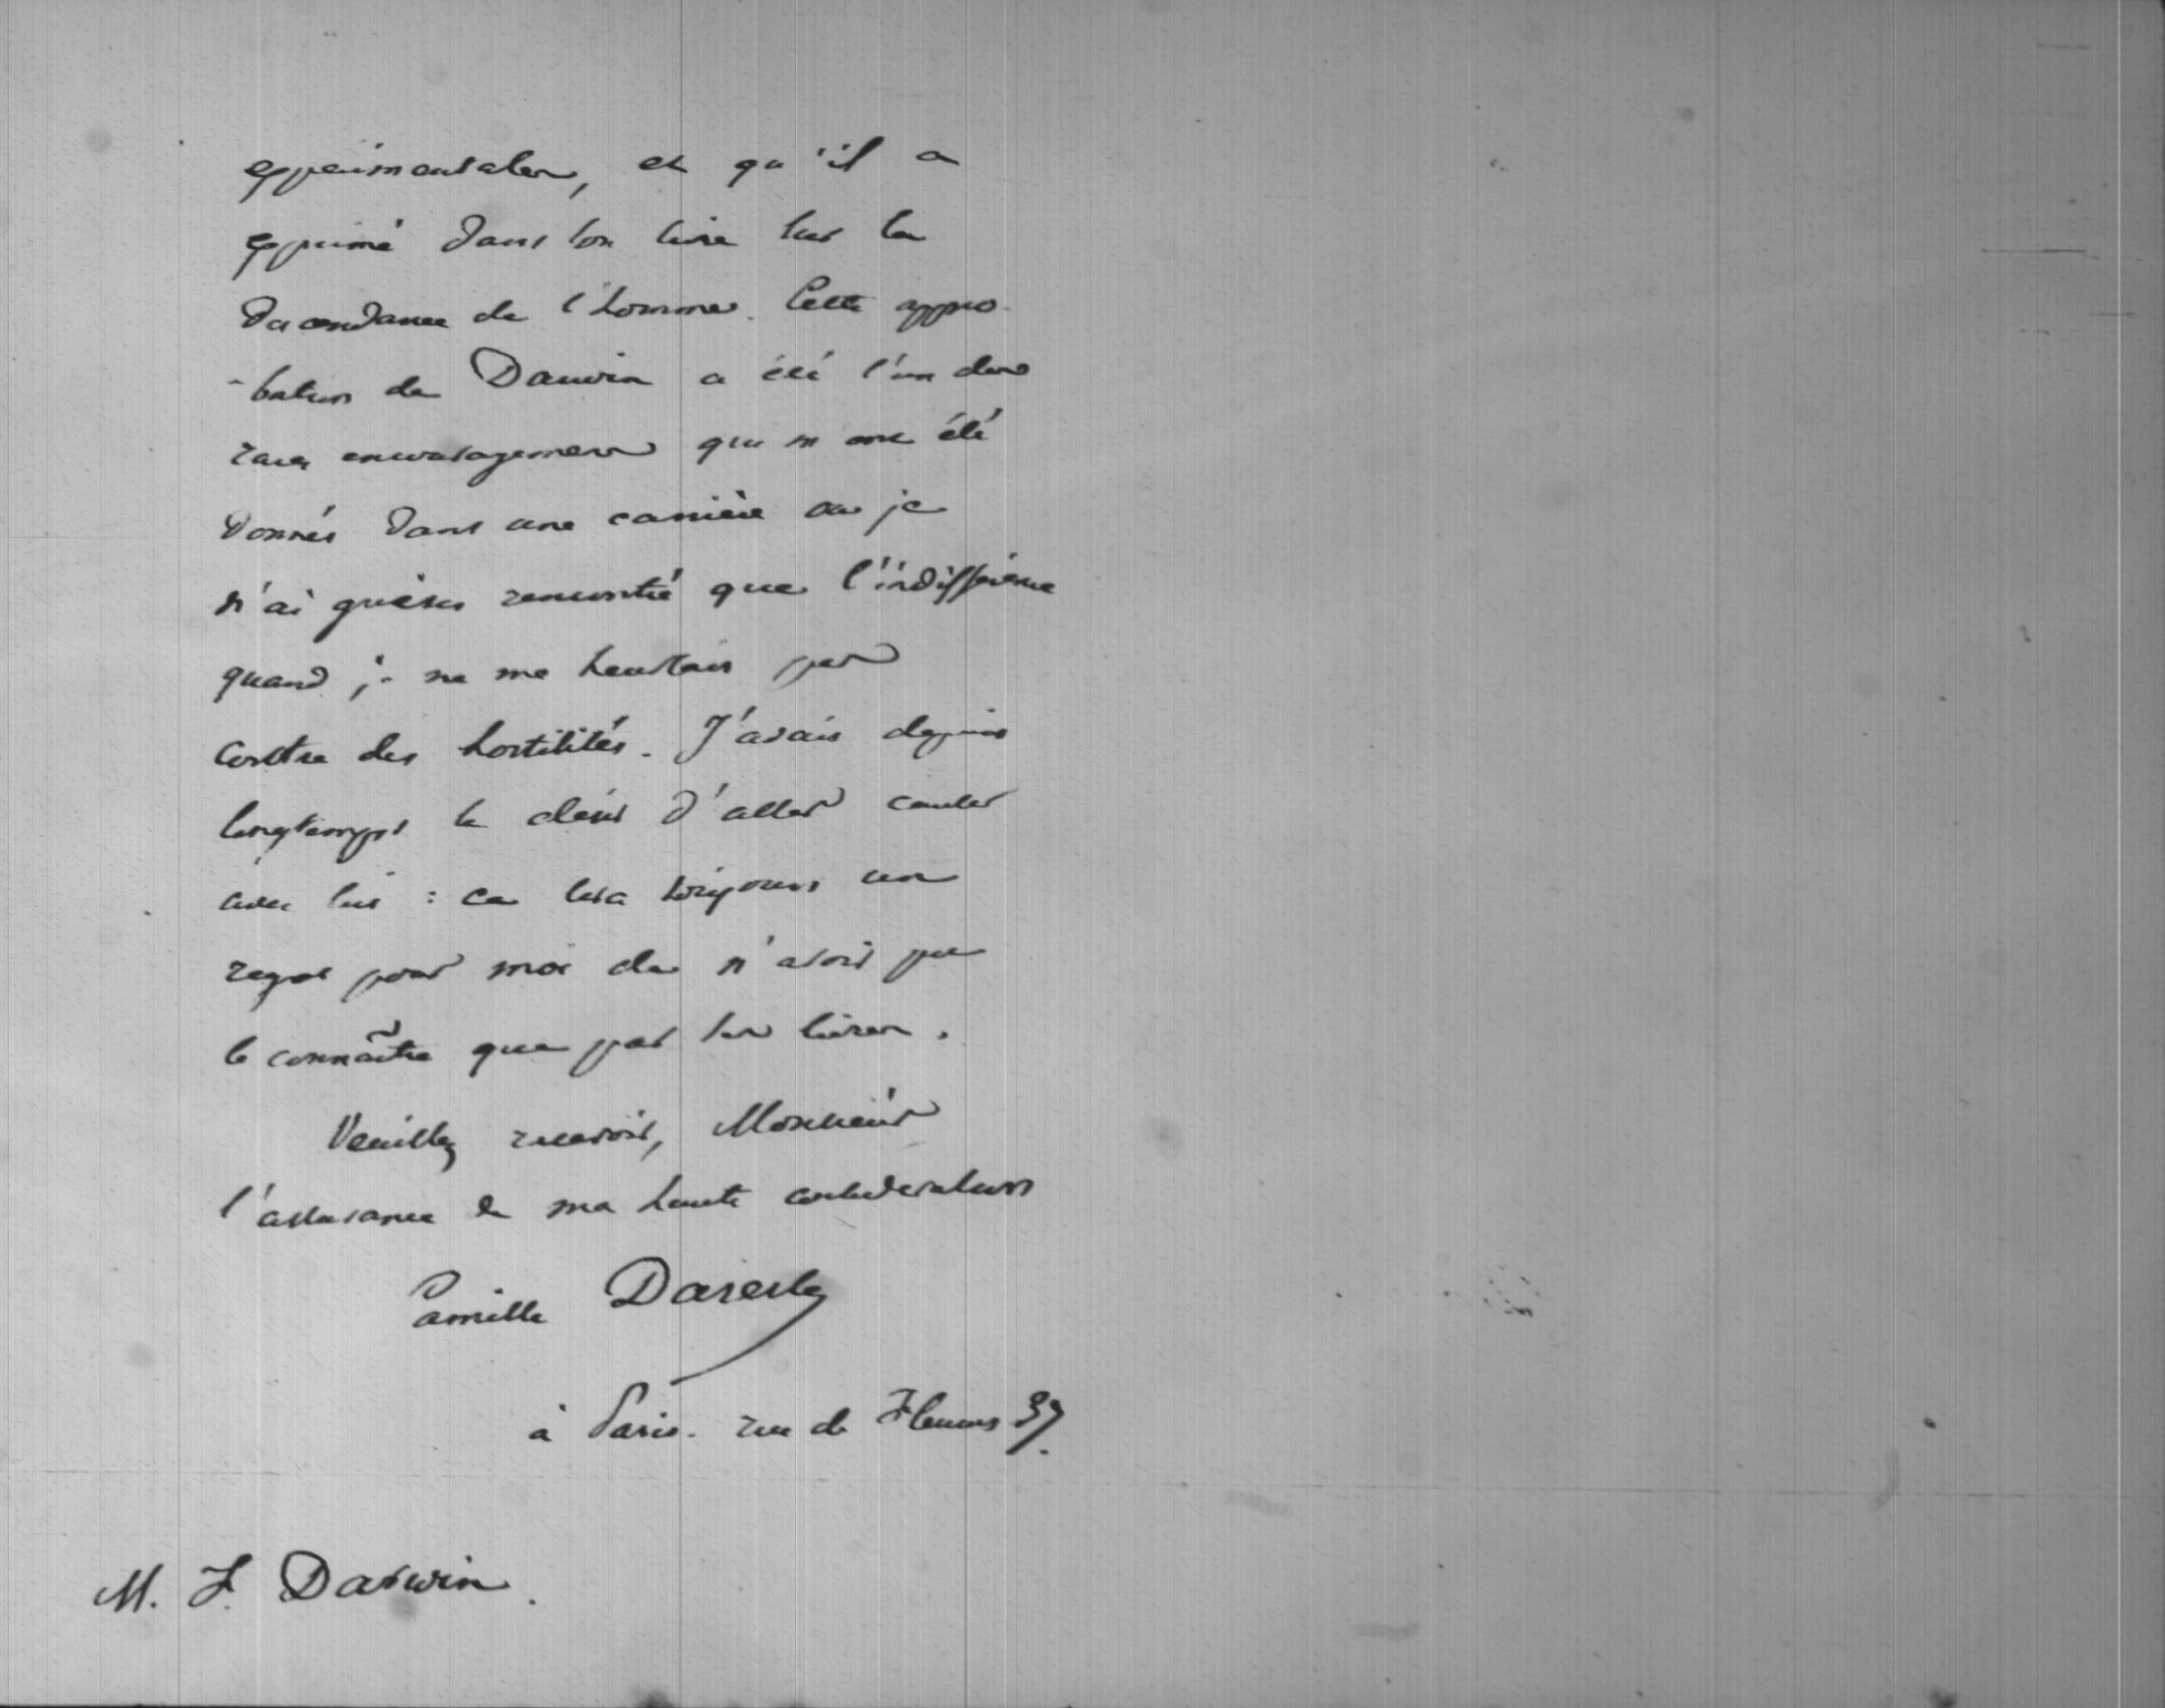 expérimentales, et qu'il a
exprimé dans son livre sur la
descendance de l'homme. Cette appro-
-bation de Darwin a été l'un des
rares encouragements qui m'ont été
donnés dans une carrière où je
n'ai guères rencontré que l'indifférence
quand je ne me heurtais pas
contre des hostilités. J'avais depuis
longtemps le désir d'aller causer
avec lui : ce sera toujours un
regret pour moi de n'avoir pu
le connaître que par ses livres.
Veuillez recevoir, Monsieur
l'assurance de ma haute considération
Camille Dareste
à Paris. rue de Fleurus 37.
M. F. Darwin.